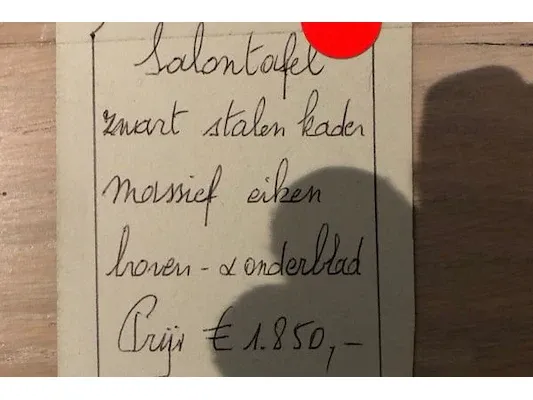 Salontafel
zwart stalen kader
massief eiken
boven - & onderblad
Prijs € 1.850,-